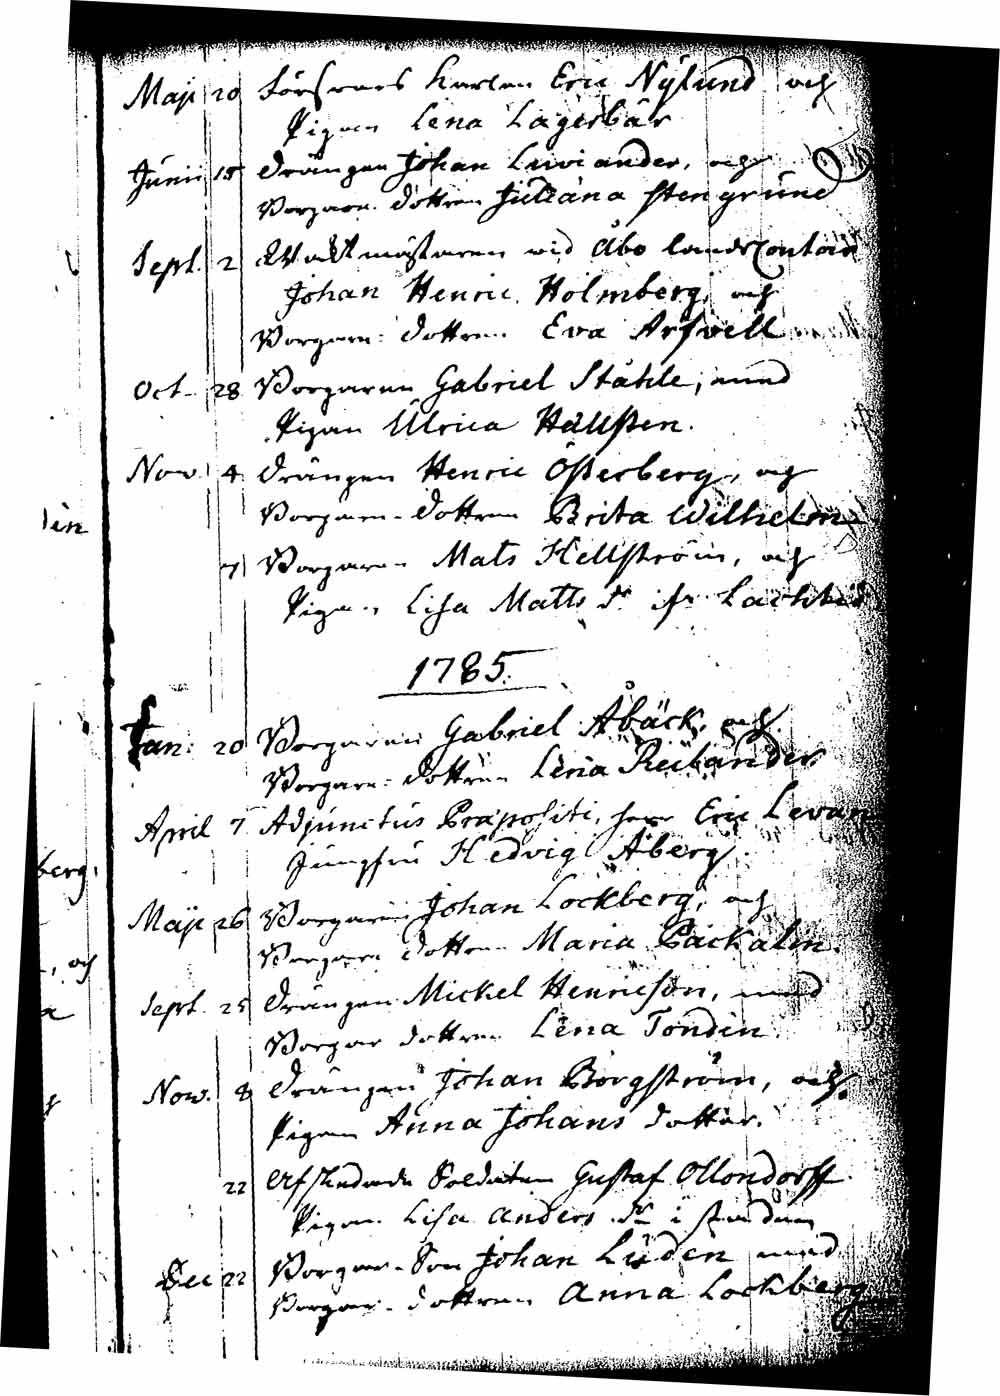 Maji 20 karlen Eric Nylund och
Pigan Lena Lagerbär
Junii 15 Drängen Johan Luviander, och
Borgare dottren Juliana Stengrund
Sept. 2 Waktmästaren vid Åbo landsContoir
Johan Henric Holmberg, och
Borgare dottren Eva Arfvell
Oct. 28 Borgaren Gabriel Ståhle, med
Pigan Ulrica Hällsten.
Nov. 4 Drängen Henric Österberg, och
lin
Borgare-dottren Brita Wilhelm
7 Borgaren Mats Hellström, och
Pigan Lisa Matts dr
1785.
Jan: 20 Borgaren Gabriel Åbäck, och
Borgare-dottren Lena
April 7 Adjunctus Præpositi, herr Eric Levan
Jungfru Hedvig Åberg.
berg,
Maji 26 Borgaren Johan Lockberg, och
Borgare dottren Maria Packalin.
, och
Sept. 25 Drängen Mickel Henricson, med
Borgar dottren Lena Tondin.
Nov. 8 Drängen Johan Borgström, och
Pigan Anna Johans dotter.
22 Afskedade Soldaten Gustaf Ollondorff
Pigan Lisa Anders dr i staden
Dec 22 Borgar-Son Johan Lüden med
Borgar-dottren Anna Lockberg